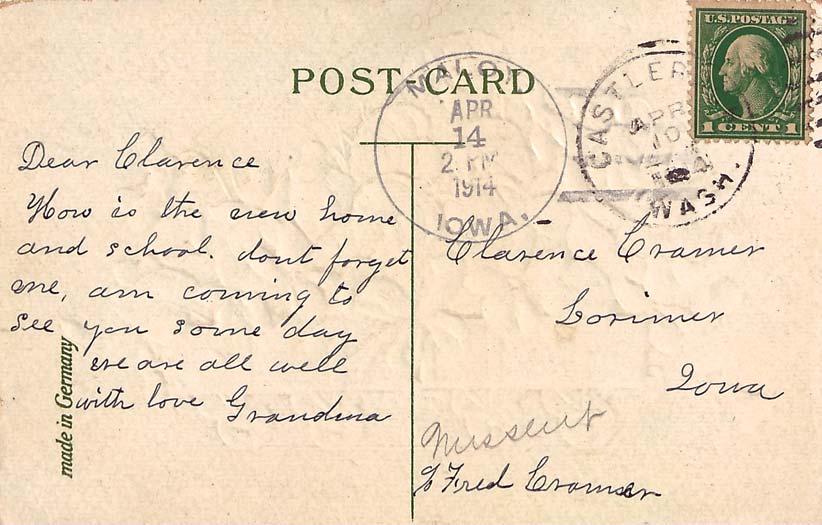 POST-CARD
U.S. POSTAGE
1 CENT 1
APR
14
1914
IOWA.
CASTLER
APR
10
WASH.
Dear Clarence
How is the new home
and school. dont forget
me, am coming to
see you some day
we are all well
with love Grandma
made in Germany
Clarence Cramer
Lorimer
Iowa
Missent
% Fred Cramer